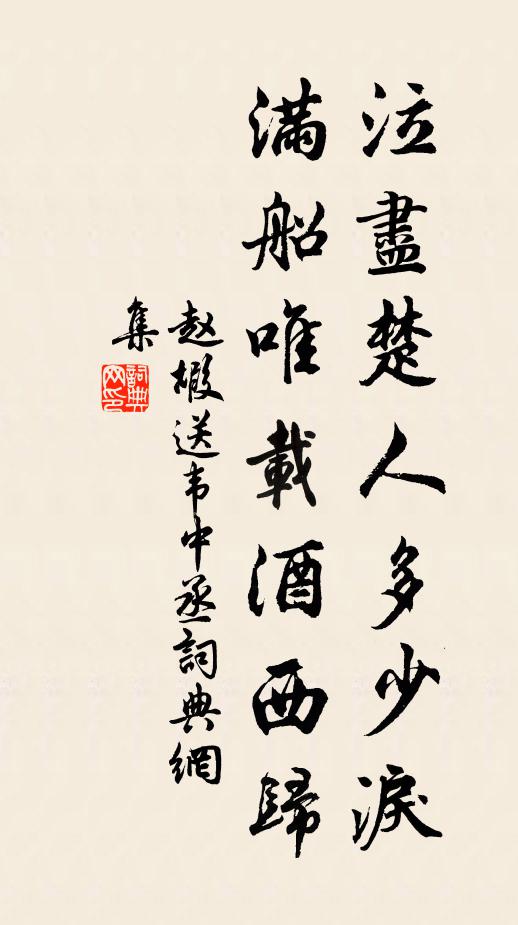 泣盡楚人多少淚
滿船唯載酒西歸
赵嘏送韦中丞詞典網
集
詞典网印